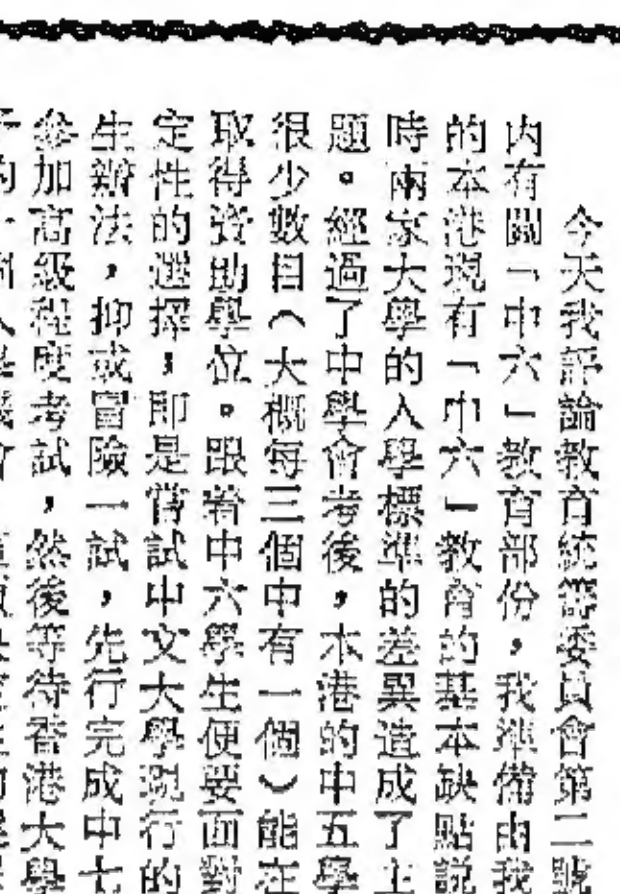 今天我評論教育統籌委員會第二號
内有關「中六」教育部份，我準備由我
的本港現有「中六」教育的基本缺點説
時兩家大學的入學標準的差異造成了主
題。經過了中學會考後，本港的中五學
很少數目（大概每三個中有一個）能在
取得資助學位。跟着中六學生便要面對
定性的選擇，即是嘗試中文大學現行的
生辦法，抑或冒險一試，先行完成中七
參加高級程度考試，然後等待香港大學